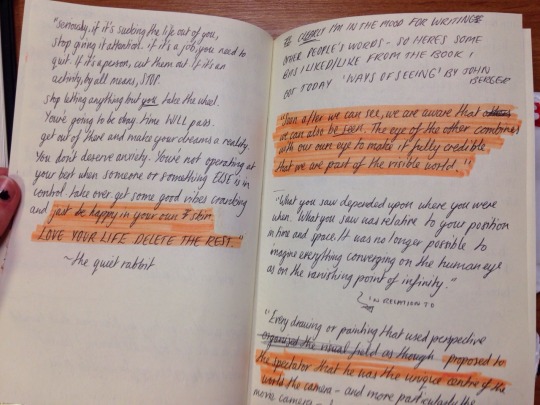 "seriously, if it's sucking the life out of you,
stop giving it attention. if it's a job, you need to
quit. if it's a person, cut them out. if it's an
activity, by all means, STOP.
stop letting anything but you take the wheel.
You're going to be okay. time WILL pass.
get out of there and make your dreams a reality.
You don't deserve anxiety. You're not operating at
your best when someone or something ELSE is in
control. take over. get some good vibes crowding
and just be happy in your own skin.
LOVE YOUR LIFE. DELETE THE REST."
~the quiet rabbit
CLEARLY I'M IN THE MOOD FOR WRITING
OTHER PEOPLE'S WORDS - SO HERES SOME
BITS I LIKED/LIKE FROM THE BOOK I
GOT TODAY 'WAYS OF SEEING' BY JOHN
BERGER
"Soon after we can see, we are aware that
we can also be seen. The eye of the other combines
with our own eye to make it fully credible
that we are part of the visible world."
"What you saw depended upon where you were
when. What you saw was relative to your position
in time and space. It was no longer possible to
imagine everything converging on the human eye
as on the vanishing point of infinity."
IN RELATION TO
"Every drawing or painting that used perspective
organized the visual field as though proposed to
the spectator that he was the unique centre of the
world. the camera - and more particularly the
movie camera -